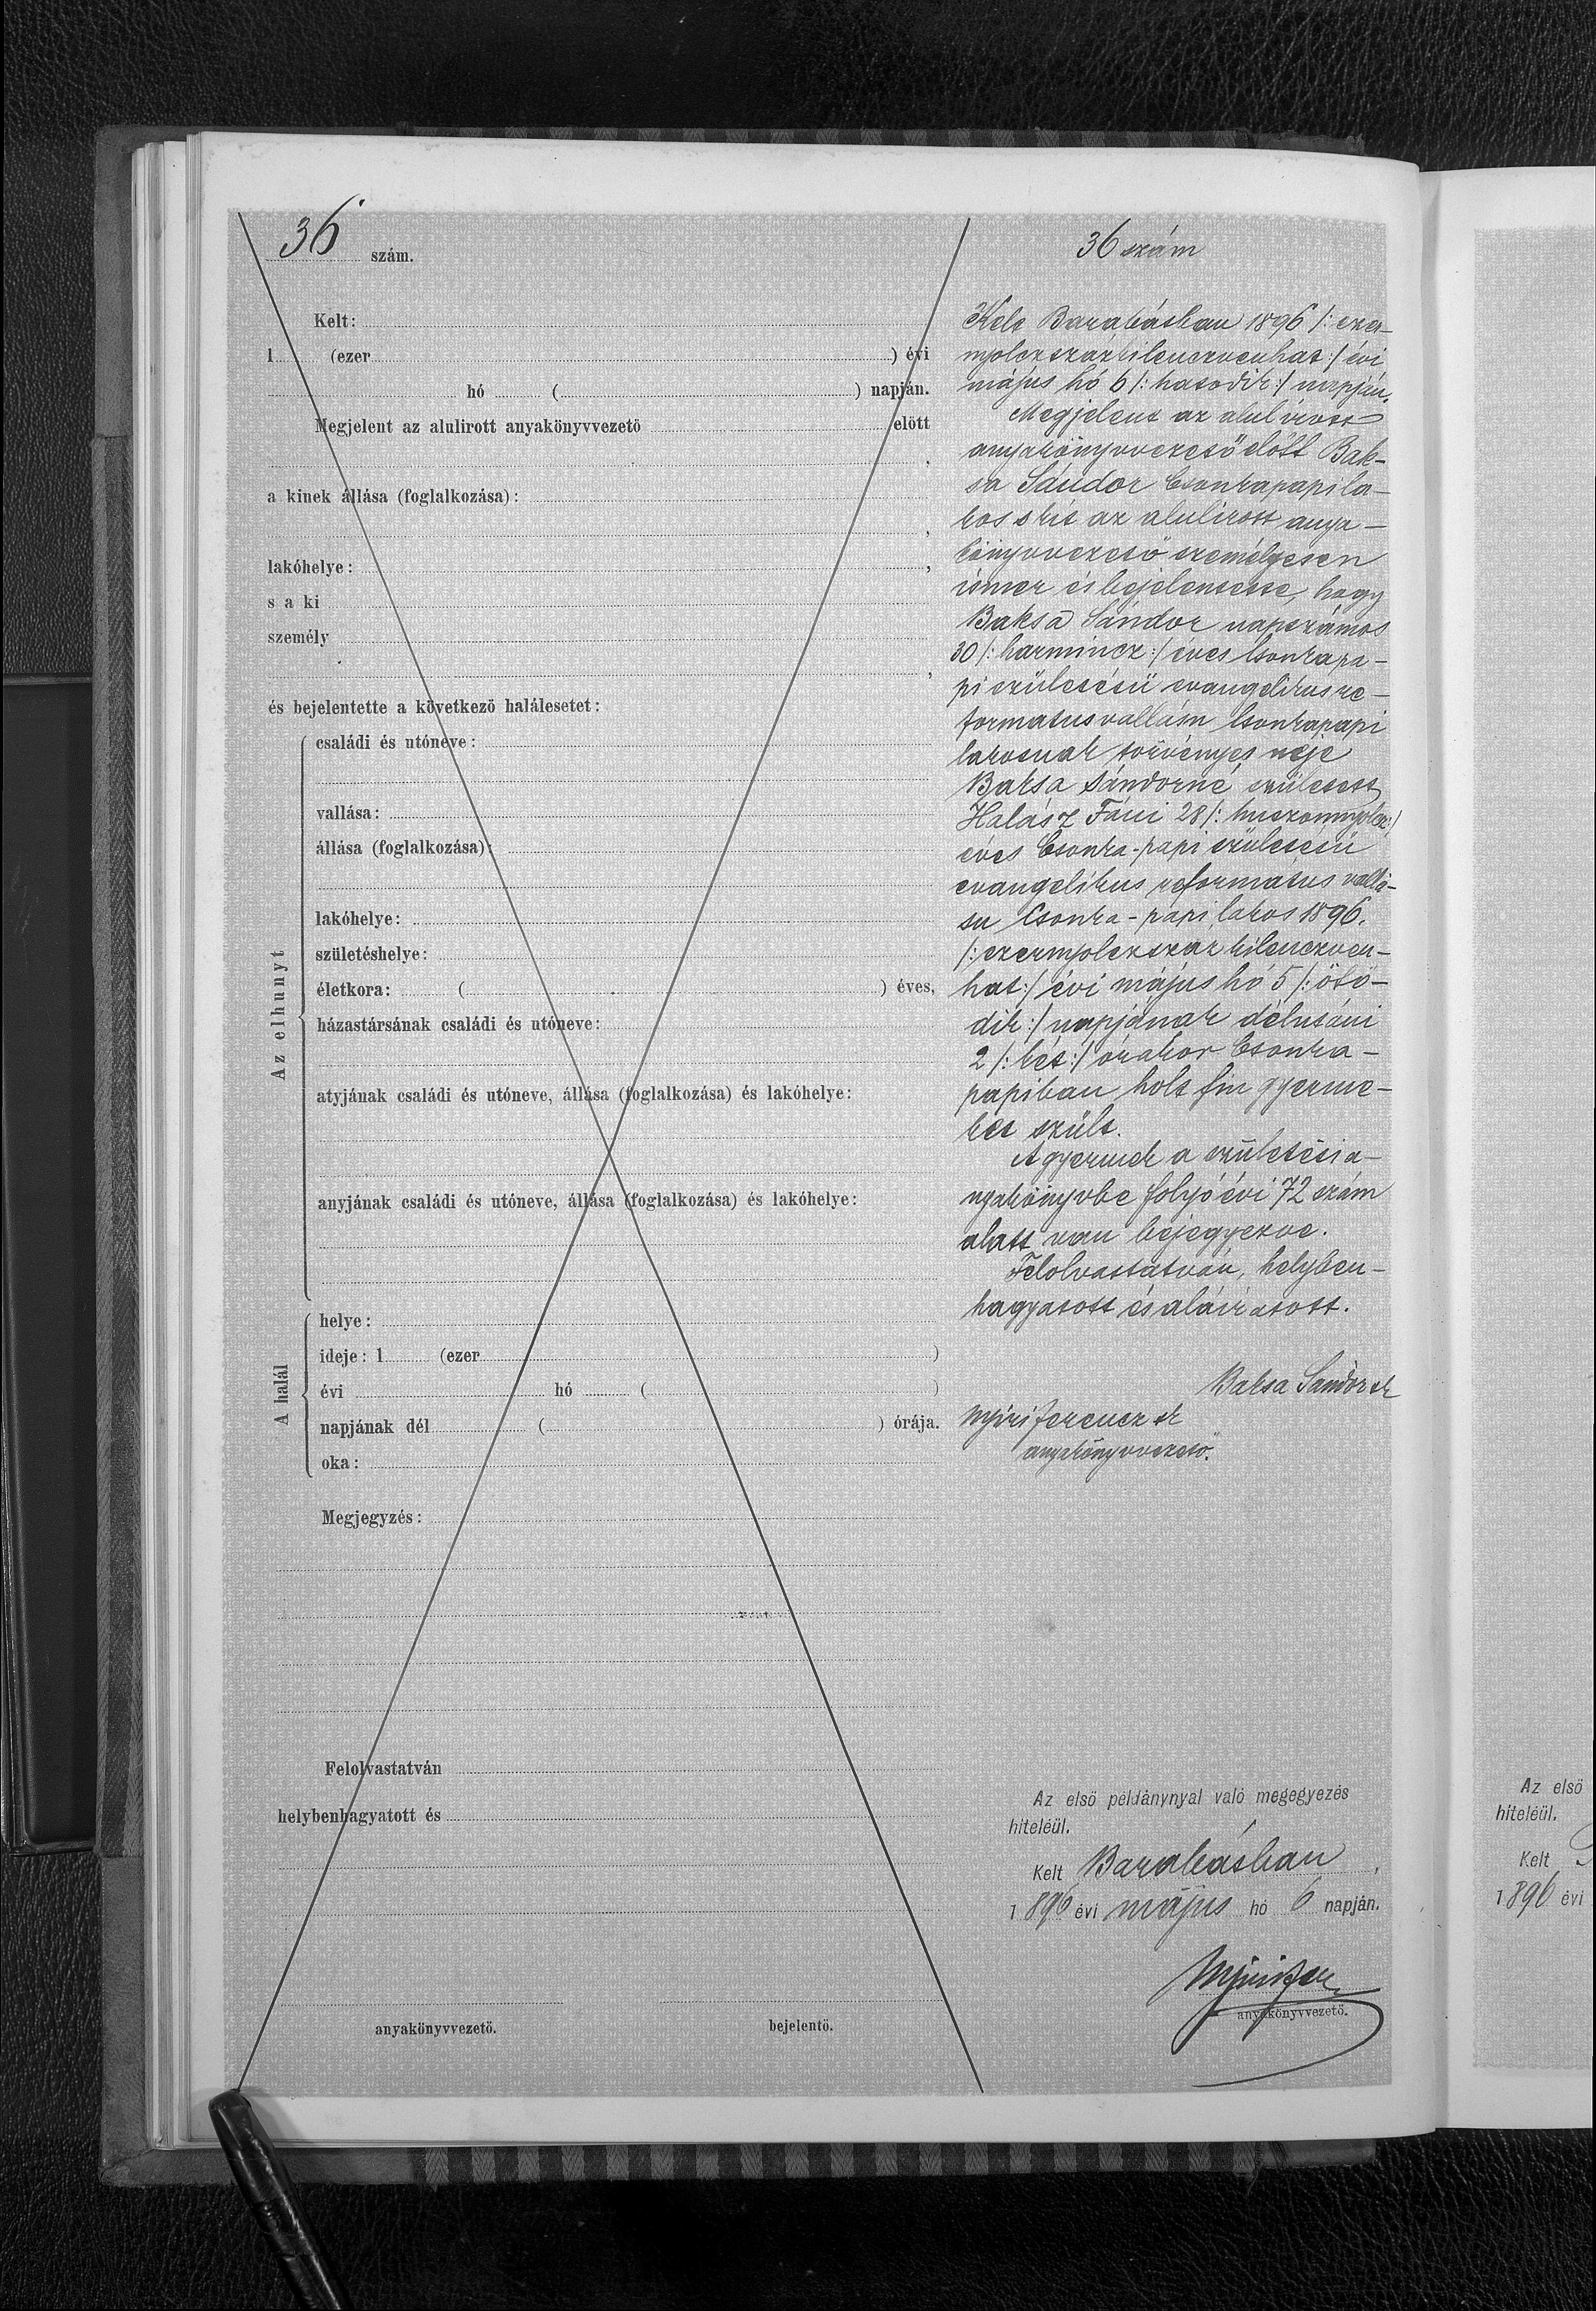 36 szám.
Kelt:
1 (ezer ) évi
hó ( ) napján.
Megjelent az alulirott anyakönyvvezető előtt
,
a kinek állása (foglalkozása):
,
lakóhelye: ,
s a ki
személy
,
és bejelentette a következő halálesetet:
Az elhunyt
családi és utóneve:
vallása:
állása (foglalkozása):
lakóhelye:
születéshelye:
életkora: ( ) éves,
házastársának családi és utóneve:
atyjának családi és utóneve, állása (foglalkozása) és lakóhelye:
anyjának családi és utóneve, állása (foglalkozása) és lakóhelye:
A halál
helye:
ideje: 1 (ezer )
évi hó ( )
napjának dél ( ) órája.
oka:
Megjegyzés:
Felolvastatván
helybenhagyatott és
anyakönyvvezető. bejelentő.
36 szám
Kelt Barabásban 1896 /: ezer-
nyolczszázkilenczvenhat :/ évi
május hó 6 /: hatodik :/ napján.
Megjelent az alulirott
anyakönyvvezető előtt Bak-
sa Sándor Csonkapapi la-
kos okit az alulirott anya-
könyvvezető személyesen
ismer és bejelentette, hogy
Baksa Sándor napszámos
30 /: harmincz :/ éves Csonkapa-
pi születésü evangelikus re-
formatus vallásu Csonkapapi
lakosnak törvényes neje
Baksa Sándorné született
Halász Fáni 28 /: huszonnyolcz :/
éves Csonka-papi születésü
evangelikus reformatus vallá-
su Csonka-papi lakos 1896.
/: ezernyolczszáz kilenczven-
hat :/ évi május hó 5 /: ötö-
dik :/ napjának délutáni
2 /: két :/ órakor Csonka-
papiban holt fiu gyerme-
ket szült.
A gyermek a születési a-
nyakönyvbe folyó évi 72 szám
alatt van bejegyezve.
Felolvastatván, helyben-
hagyatott és aláiratott.
Baksa Sándor sk
Nyiri Ferencz sk
anyakönyvvezető.
Az első példánynyal való megegyezés
hiteléül.
Kelt Barabásban ,
1896 évi május hó 6 napján.
Nyiri Fer
anyakönyvvezető.
Az első
hiteléül.
Kelt
1896 évi